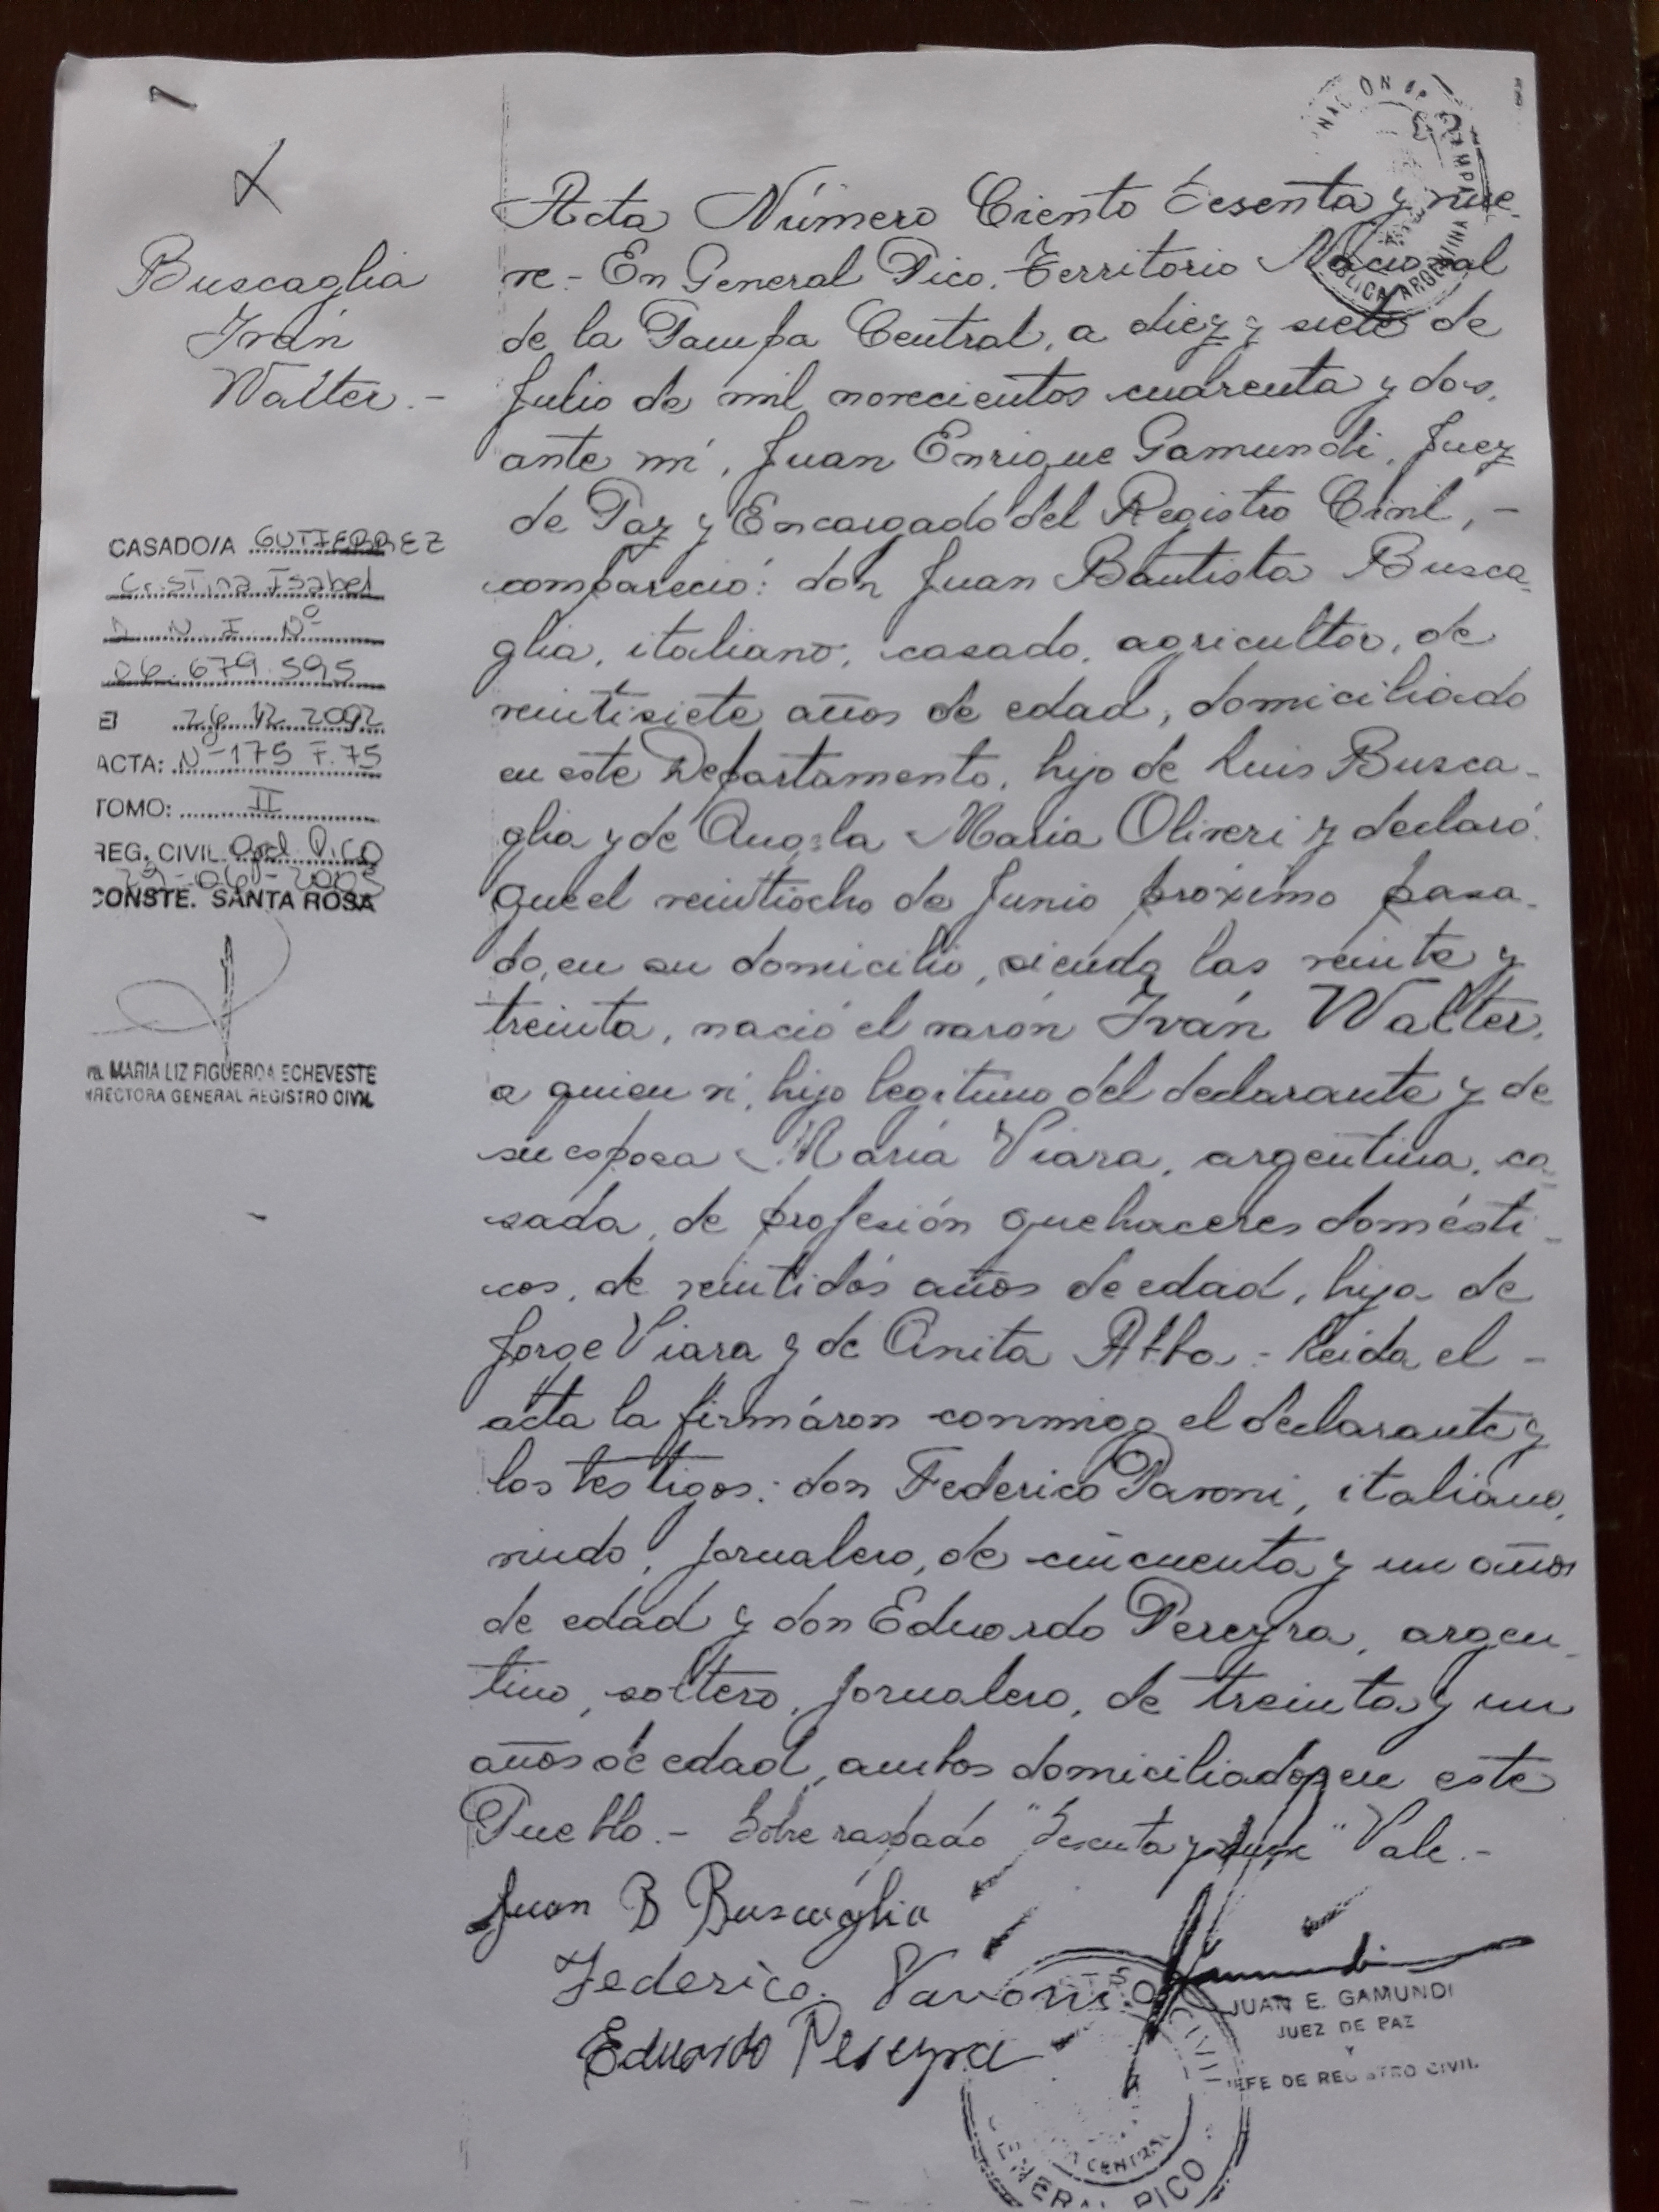 Buscaglia
Iván
Walter.-
CASADO/A GUTIERREZ
Cristina Isabel
D N I Nº
06.679.595
El 26 12 2002
ACTA: Nº 175 F. 75
TOMO: II
REG. CIVIL Gral Pico
CONSTE. SANTA ROSA
MARIA LIZ FIGUEROA ECHEVESTE
DIRECTORA GENERAL REGISTRO CIVIL
Acta Número Ciento Sesenta y nue-
ve.- En General Pico, Territorio Nacional
de la Pampa Central, a diez y siete de
Julio de mil novecientos cuarenta y dos,
ante mí, Juan Enrique Gamundi, Juez
de Paz y Encargado del Registro Civil, -
compareció: don Juan Bautista Busca-
glia, italiano, casado, agricultor, de
veintisiete años de edad, domiciliado
en este Departamento, hijo de Luis Busca-
glia y de Angela Maria Oliveri y declaró:
Que el veintiocho de Junio próximo pasa-
do, en su domicilio, siendo las veinte y
treinta, nació el varón Iván Walter,
a quien ví, hijo legítimo del declarante y de
su esposa María Viara, argentina, ca-
sada, de profesión quehaceres domésti-
cos, de veintidós años de edad, hija de
Jorge Viara y de Anita Abba.- Leida el -
acta la firmáron conmigo el declarante y
los testigos: don Federico Pavoni, italiano,
viudo, jornalero, de cincuenta y un años
de edad y don Eduardo Pereyra, argen-
tino, soltero, jornalero, de treinta y un
años de edad, ambos domiciliados en este
Pueblo.- Sobre raspado "Sesenta y nueve" Vale.-
Juan B Buscaglia
Federico Pavoni
Eduardo Pereyra
JUAN E. GAMUNDI
JUEZ DE PAZ
Y
JEFE DE REGISTRO CIVIL
GENERAL PICO